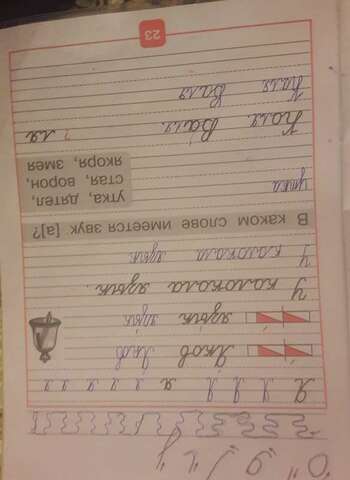 Я Я Я Я я я я я я
Яков Яков
язык язык
У колокола язык.
У колокола язык
В каком слове имеется звук [а]?
утка, дятел,
стая, ворон,
якоря, змея
утка
Коля Валя ля
Коля Валя
23